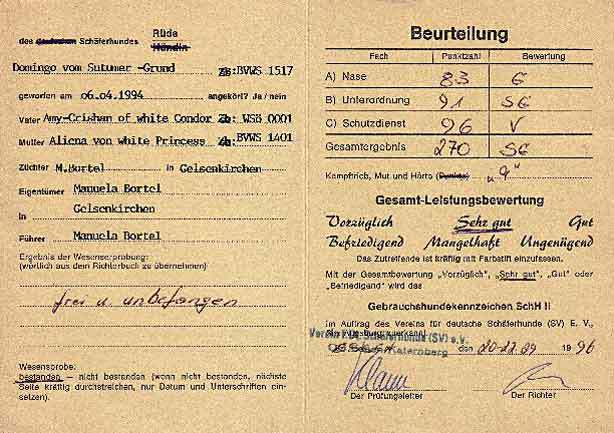 Rüde
des deutschen Schäferhundes Hündin
Domingo vom Sutumer -Grund Zb:BVWS 1517
geworfen am 06.04.1994 angekört? Ja / nein
Vater Amy-Crishan of white Condor Zb: WSÖ 0001
Mutter Alicna von white Princess Zb: BVWS 1401
Züchter M.Bortel in Gelsenkirchen
Eigentümer Manuela Bortel
in Gelsenkirchen
Führer Manuela Bortel
Ergebnis der Wesenserprobung:
(wörtlich aus dem Richterbuch zu übernehmen)
frei u. unbefangen
Wesensprobe:
bestanden – nicht bestanden (wenn nicht bestanden, nächste
Seite kräftig durchstreichen, nur Datum und Unterschriften ein-
setzen).
Beurteilung
Fach Punktzahl Bewertung
A) Nase 83 G
B) Unterordnung 91 SG
C) Schutzdienst 96 V
Gesamtergebnis 270 SG
Kampftrieb, Mut und Härte „a"
Gesamt-Leistungsbewertung
Vorzüglich Sehr gut Gut
Befriedigend Mangelhaft Ungenügend
Das Zutreffende ist kräftig mit Farbstift einzufassen.
Mit der Gesamtbewertung „Vorzüglich", „Sehr gut", „Gut" oder
„Befriedigend" wird das
Gebrauchshundekennzeichen SchH II
im Auftrag des Vereins für deutsche Schäferhunde (SV) E. V.,
Verein f. Dt. Schäferhunde (SV) e.V.
Katernberg den 1996
Der Prüfungsleiter Der Richter